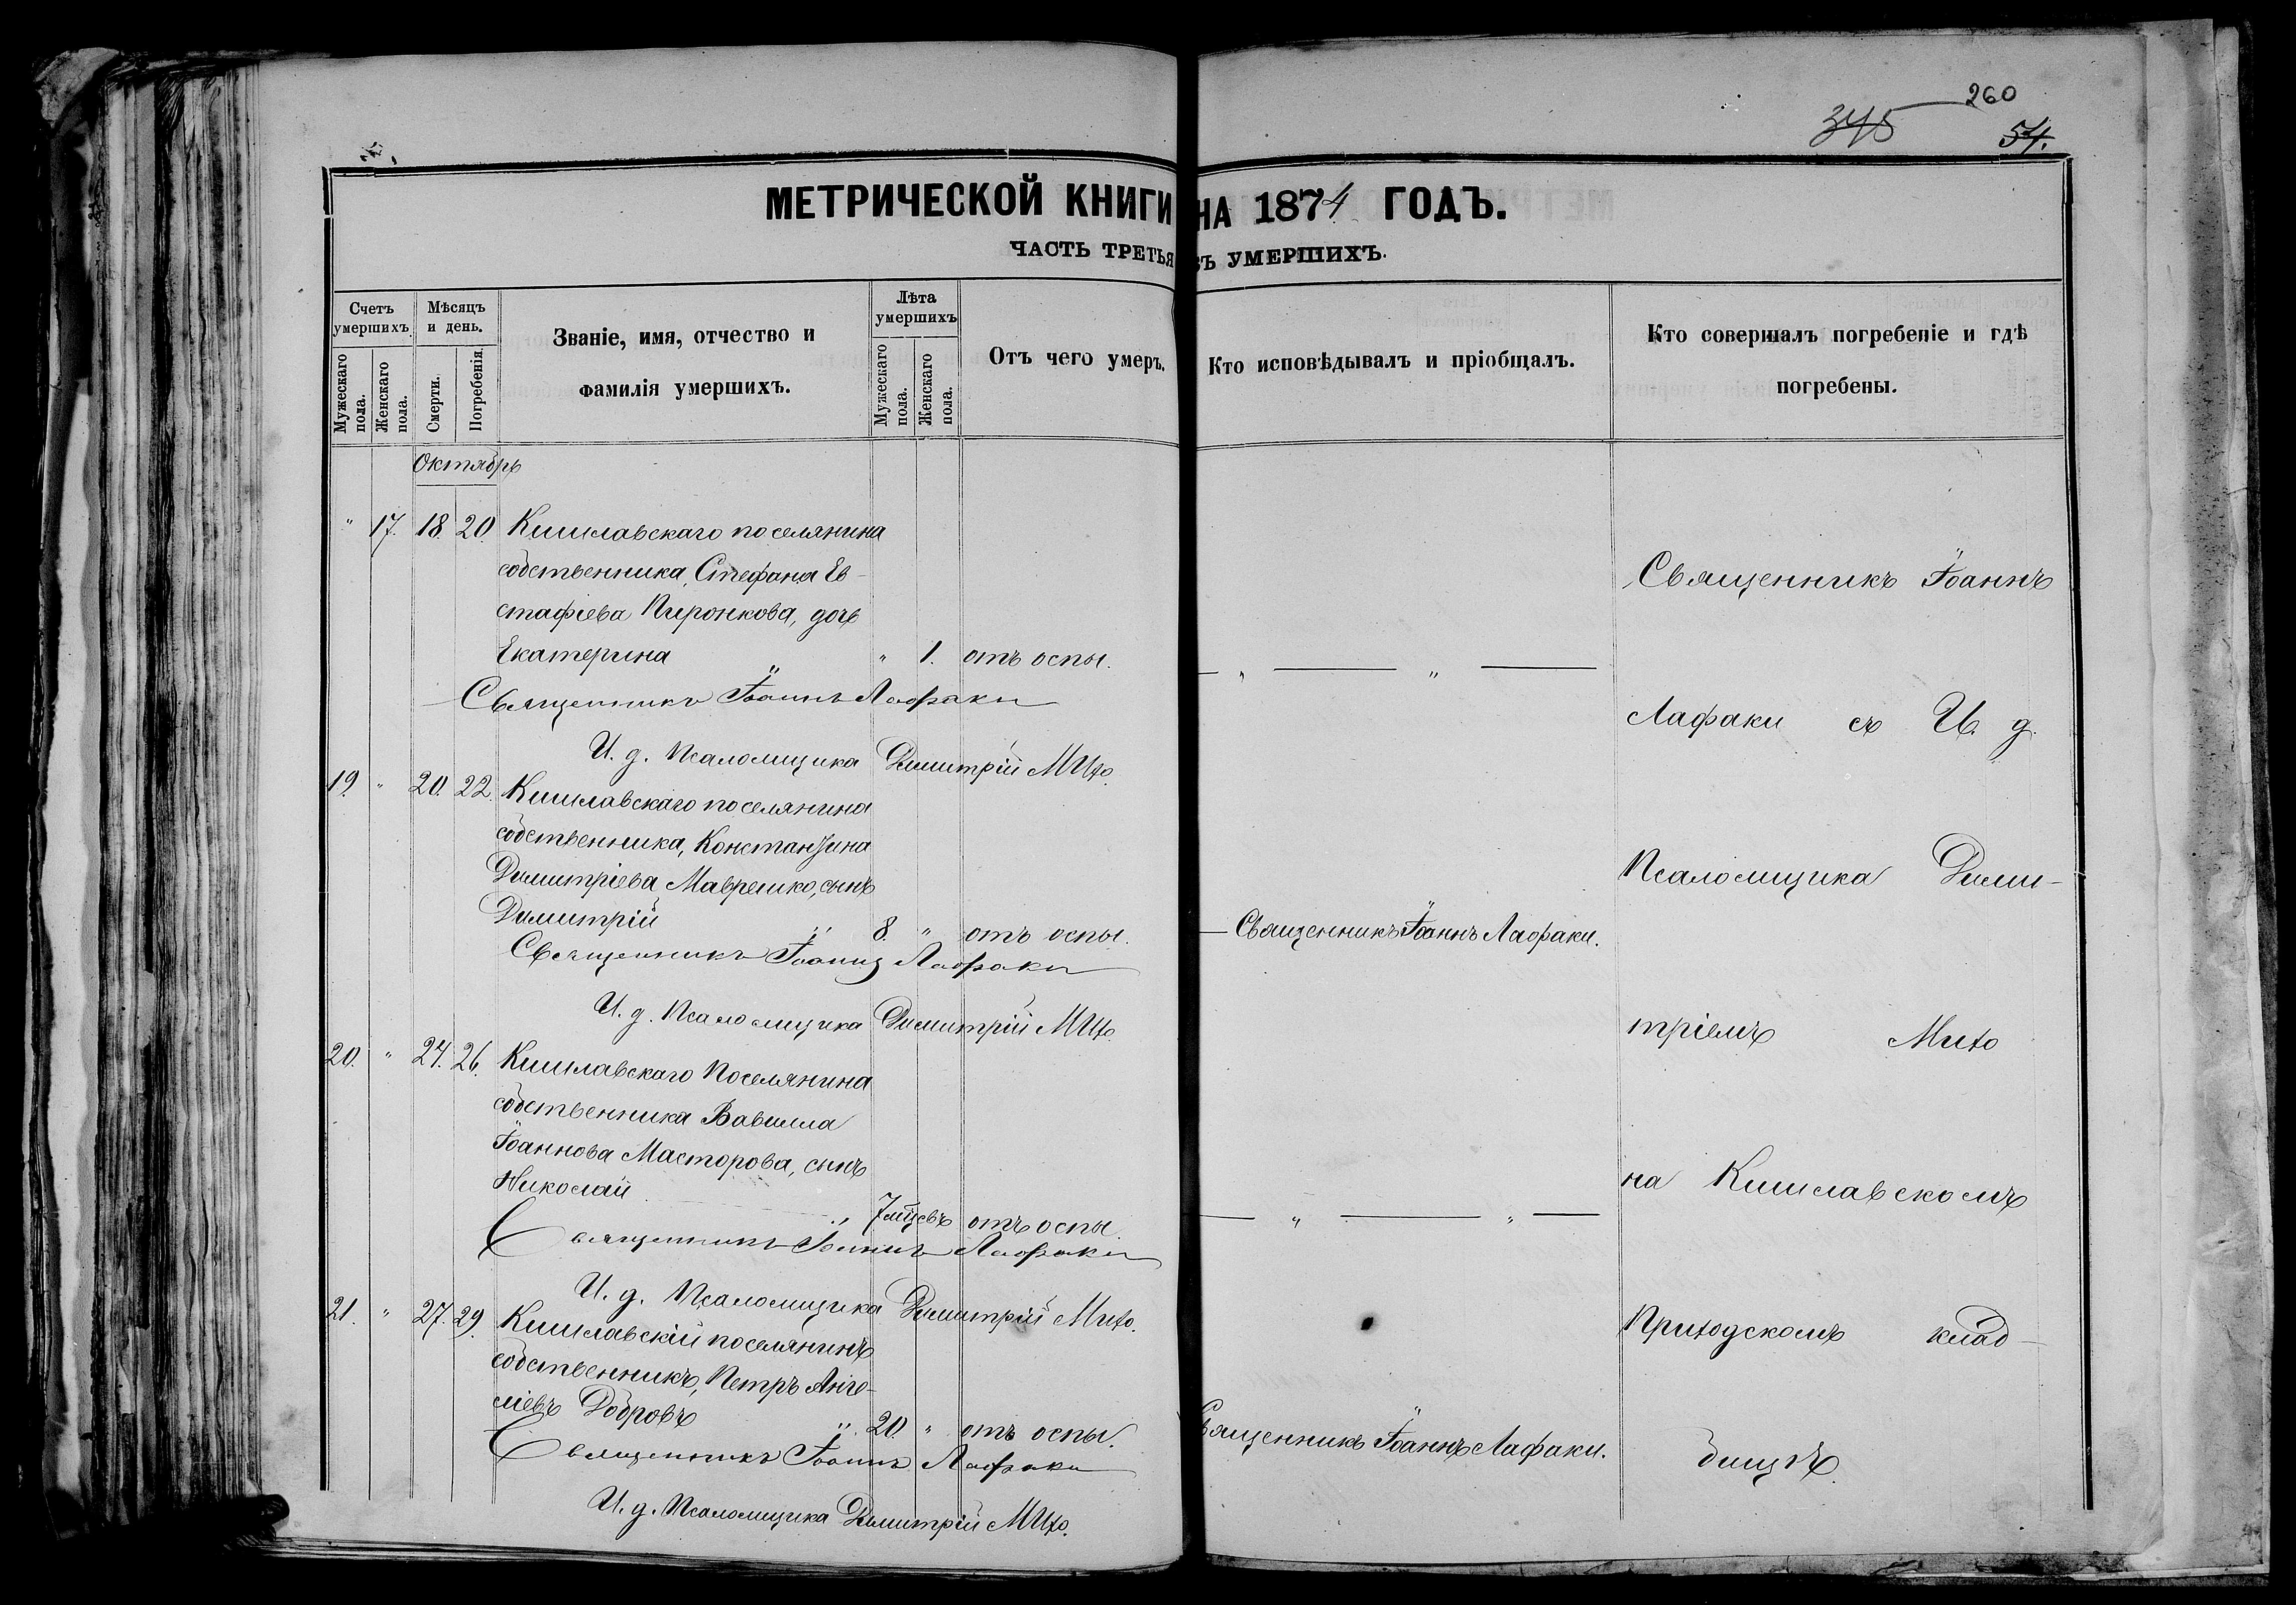 260
345
54.
МЕТРИЧЕСКОЙ КНИГИ НА 1874 ГОДЪ.
ЧАСТЬ ТРЕТЬЯ УМЕРШИХЪ.
Счетъ умершихъ.
Мѣсяцъ и день.
Званіе, имя, отчество и фамилія умершихъ.
Лѣта умершихъ
Отъ чего умеръ.
Кто исповѣдывалъ и пріобщалъ.
Кто совершалъ погребеніе и гдѣ погребены.
Мужескаго пола.
Женскаго пола.
Смерти.
Погребенія.
Мужескаго пола.
Женскаго пола.
Октябрь
" 17. 18. 20. Кишлавскаго поселянина
собственника, Стефана Ев-
стафіева Пиронкова, дочь
Екатерина " 1. отъ оспы. — " — " —
Священникъ Іоаннъ Лафаки
И. д. Псаломщика Димитрій Михо.
19. " 20. 22. Кишлавскаго поселянина
собственника, Константина
Димитріева Маврешко, сынъ
Димитрій 8. " отъ оспы. — Священникъ Іоаннъ Лафаки.
Священникъ Іоаннъ Лафаки
И. д. Псаломщика Димитрій Михо.
20. " 24. 26. Кишлавскаго Поселянина
собственника Вавилла
Іоаннова Масторова, сынъ
Николай 7 мѣсцевъ отъ оспы. — " — " —
Священникъ Іоаннъ Лафаки
И. д. Псаломщика Димитрій Михо.
21. " 27. 29. Кишлавскій поселянинъ
собственникъ, Петръ Анге-
ліевъ Добровъ 20. " отъ оспы. Священникъ Іоаннъ Лафаки.
Священникъ Іоаннъ Лафаки
И. д. Псаломщика Димитрій Михо.
Священникъ Іоаннъ
Лафаки съ И. д.
Псаломщика Дими-
тріемъ Михо
на Кишлавскомъ
Приходскомъ клад-
бищѣ.